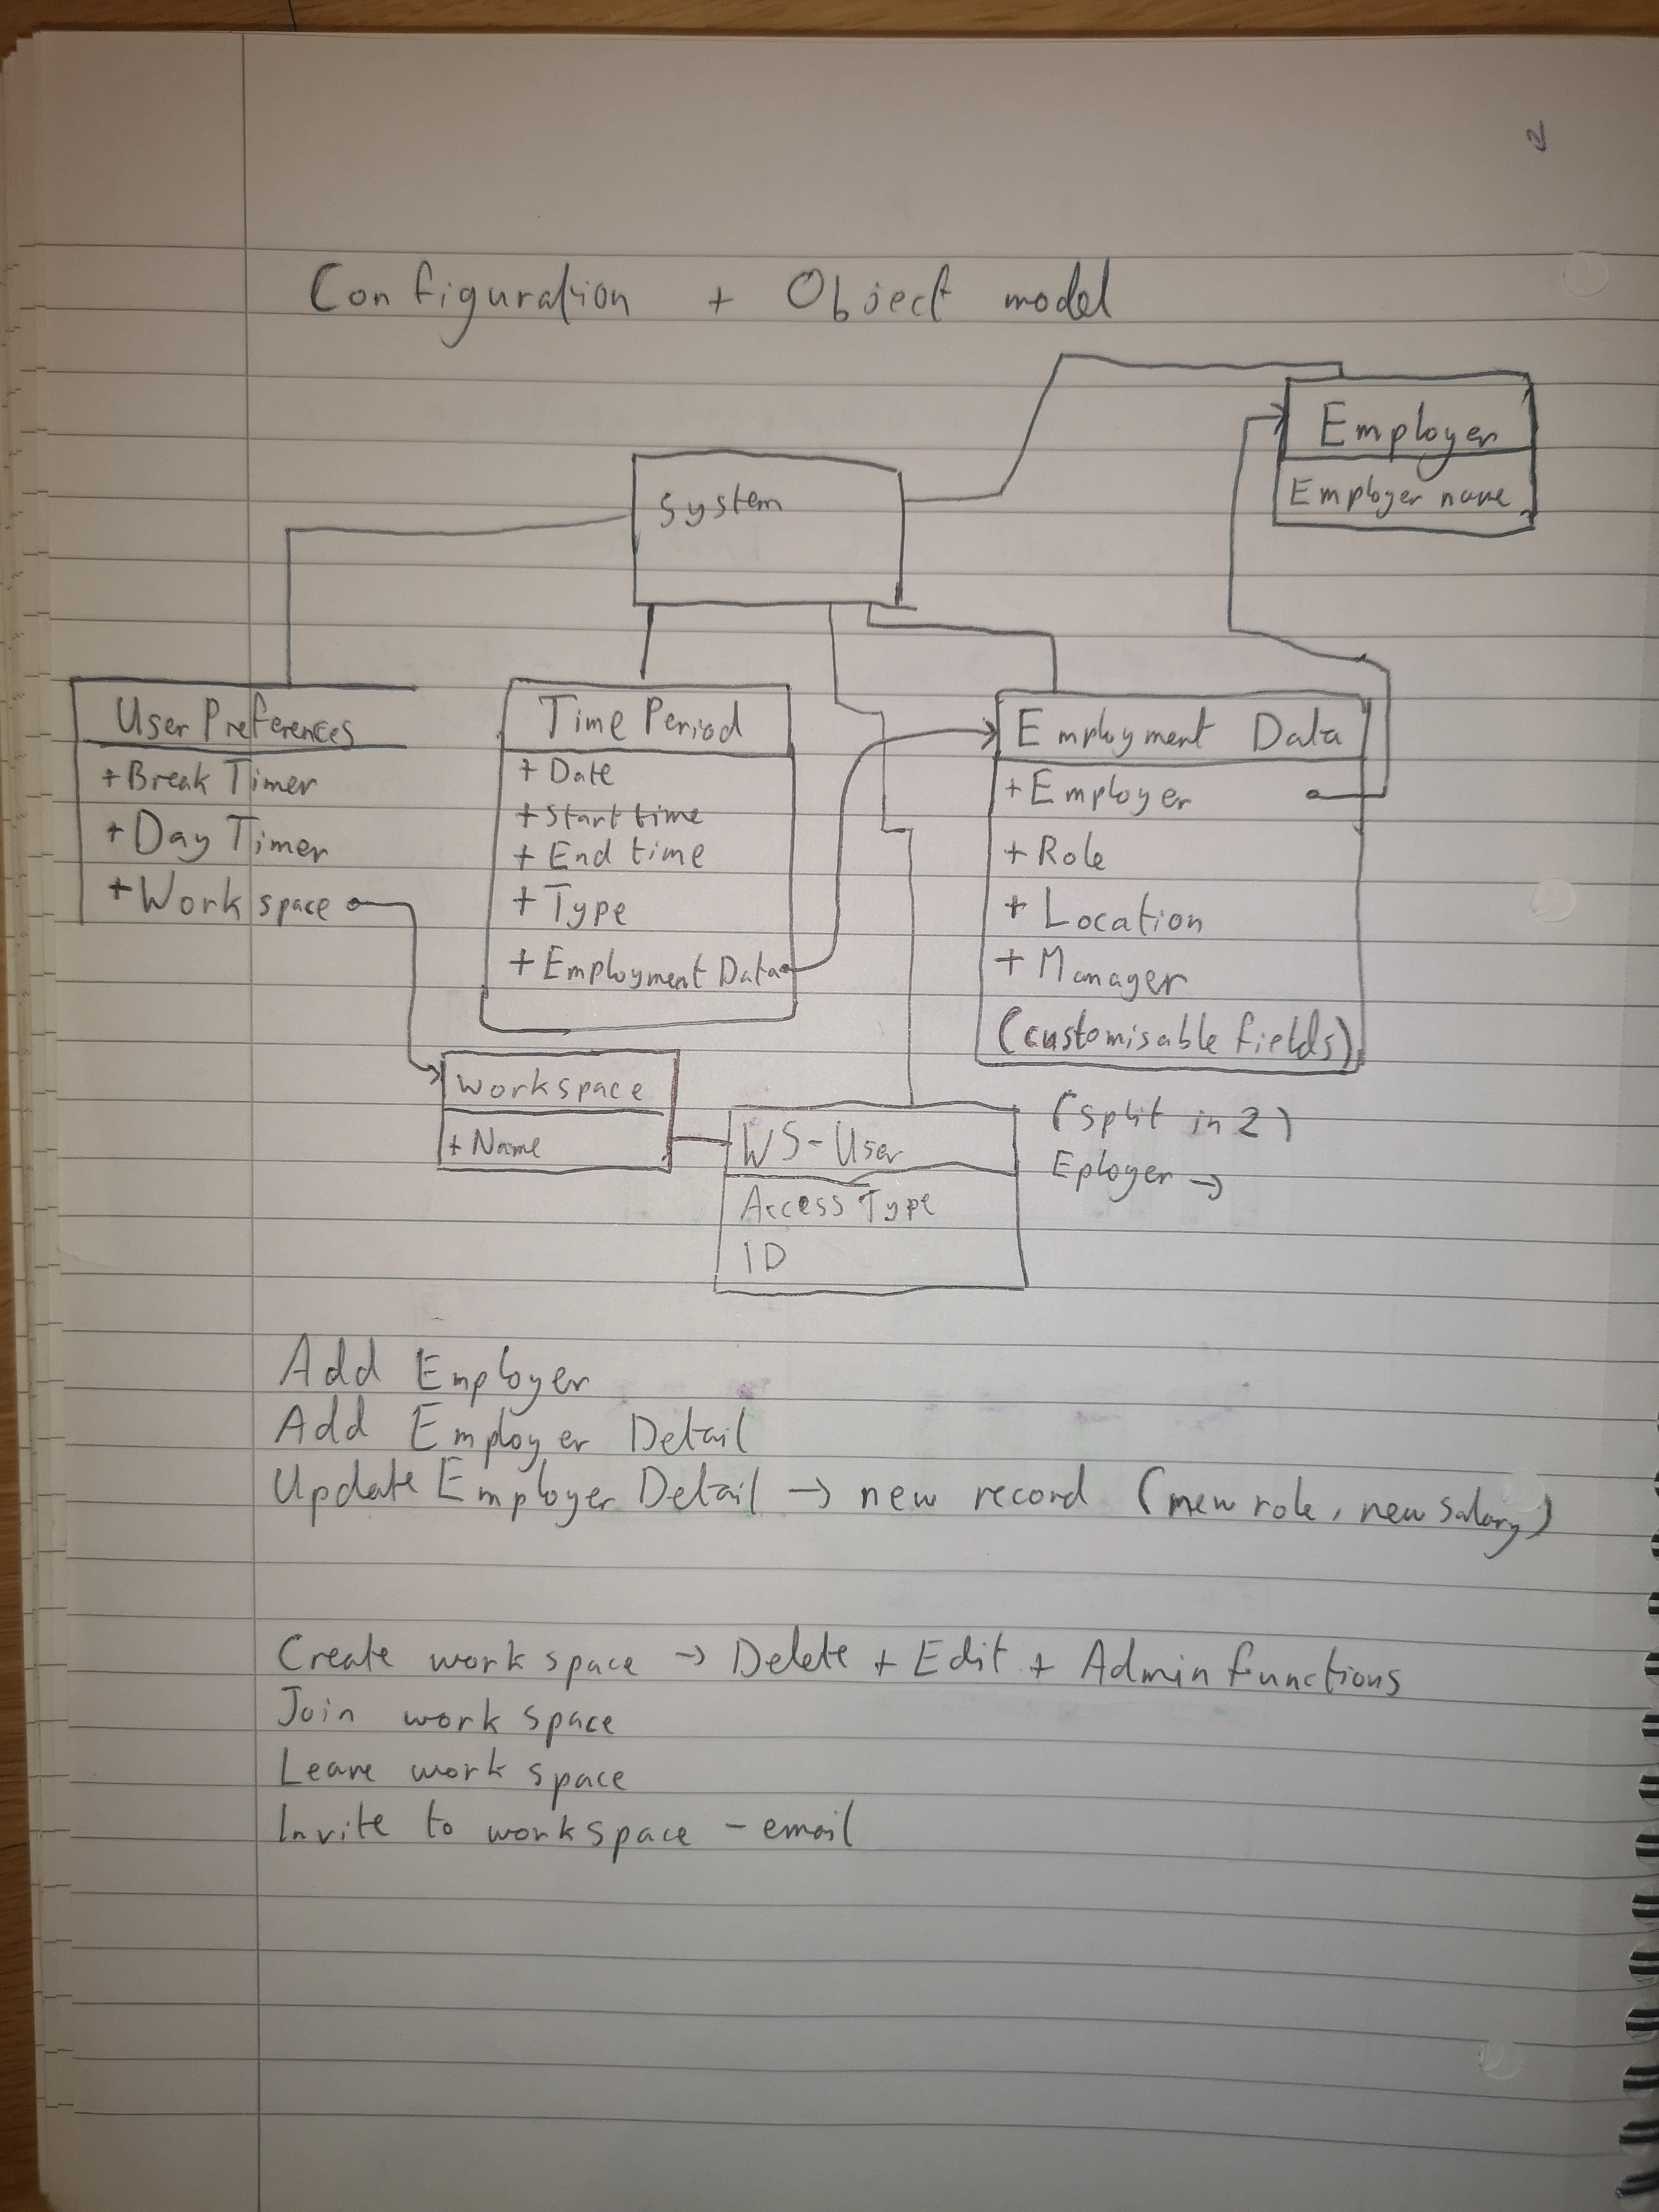 2
Configuration + Object model
Employer
Employer name
System
User Preferences
+ Break Timer
+ Day Timer
+ Workspace
Time Period
+ Date
+ Start time
+ End time
+ Type
+ Employment Data
Employment Data
+ Employer
+ Role
+ Location
+ Manager
(customisable fields)
workspace
+ Name
WS-User
Access Type
ID
(split in 2)
Eployer →
Add Employer
Add Employer Detail
Update Employer Detail → new record (new role, new salary)
Create workspace → Delete + Edit + Admin functions
Join workspace
Leave workspace
Invite to workspace - email